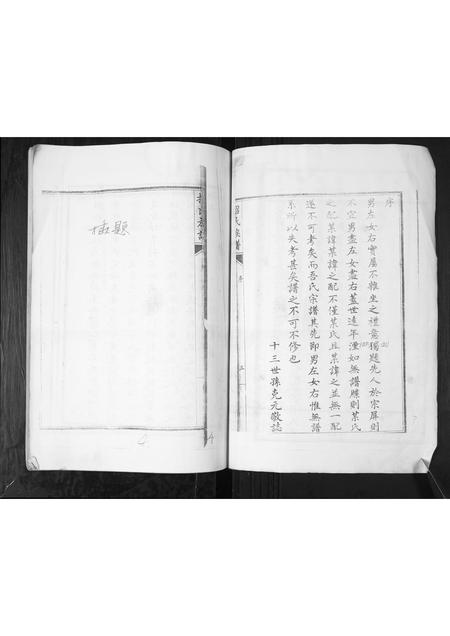 序
男左女右實屬不雜坐之禮意獨題先人於宗屏則
不宜男盡左女盡右蓋世遠年湮如無譜牒則某氏
之配某諱某諱之配不僅某氏且某諱之並無一配
遂不可考矣而吾氏宗譜其先即男左女右惟無譜
系所以失考甚矣譜之不可不修也
十三世孫克元敬誌
氏族譜
序
插題